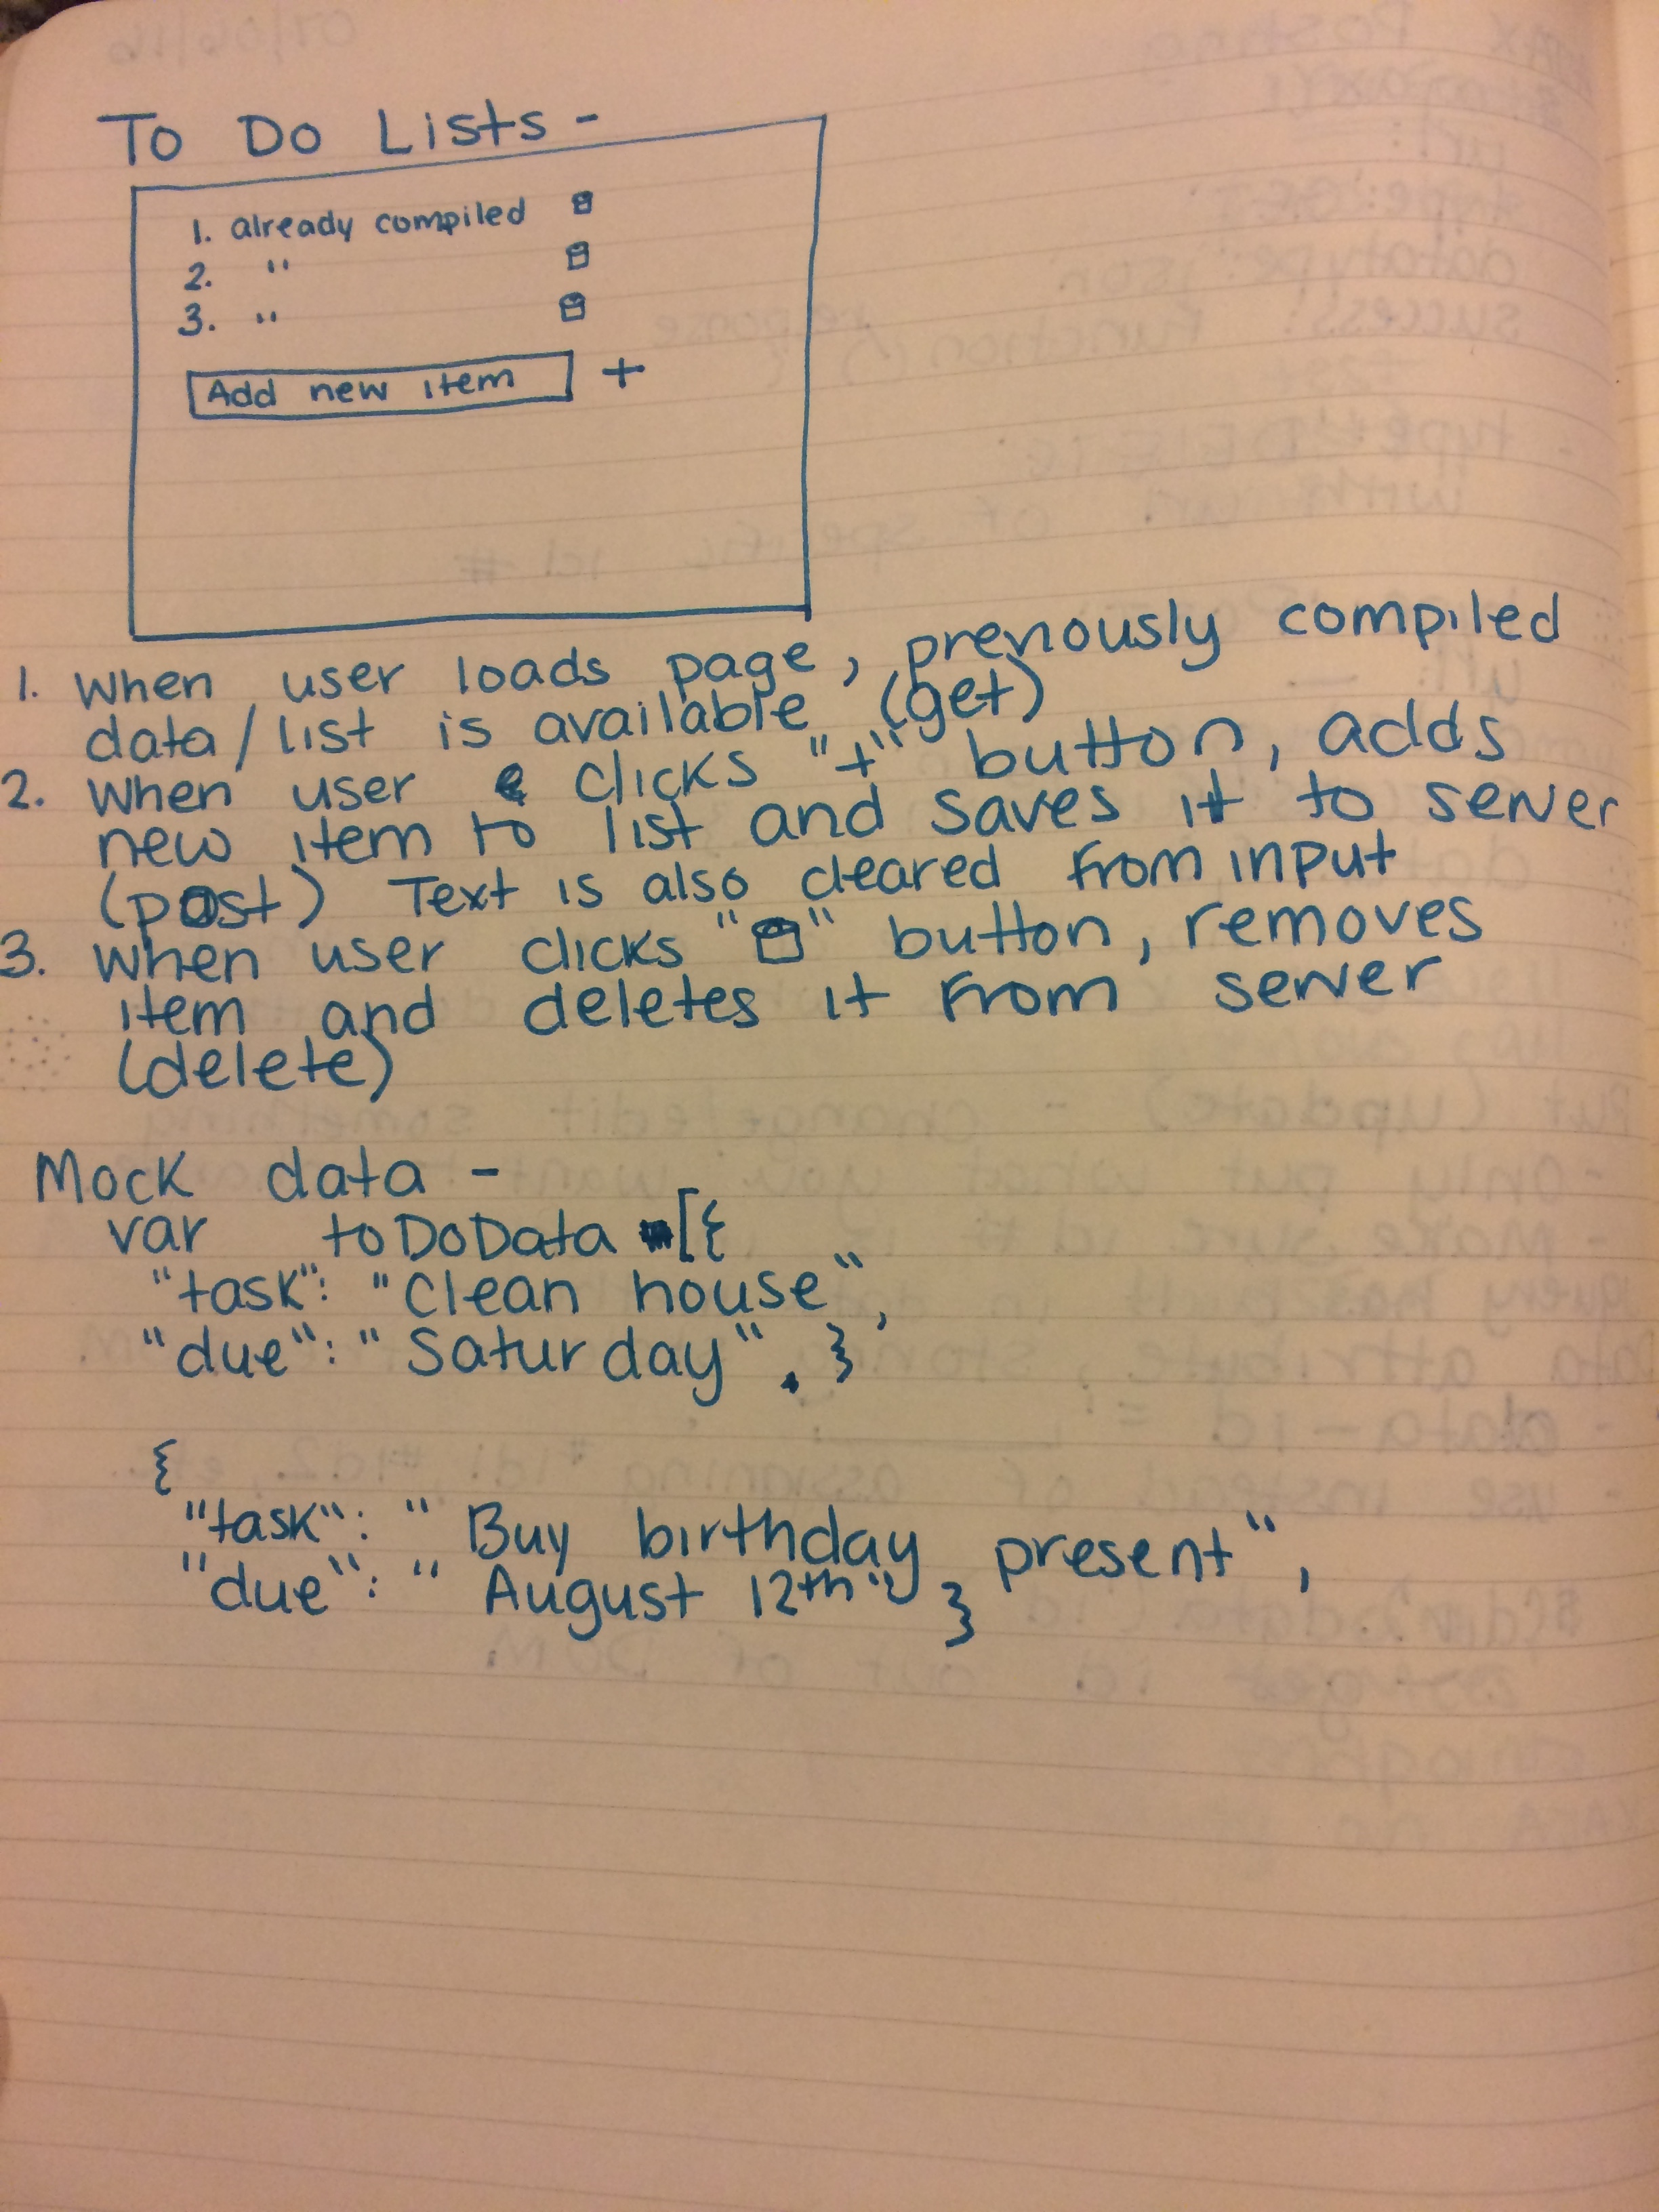 To Do Lists -
1. already compiled
2. "
3. "
Add new item +
1. When user loads page, previously compiled
data/list is available (get)
2. When user clicks "+" button, adds
new item to list and saves it to server
(post) Text is also cleared from input
3. When user clicks " " button, removes
item and deletes it from server
(delete)
Mock data -
var toDoData = [{
"task": "Clean house",
"due": "Saturday", }
{
"task": "Buy birthday present",
"due": "August 12th" }